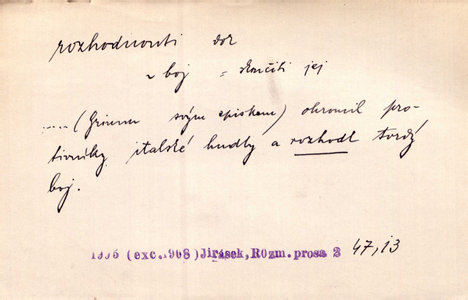 rozhodnouti dok
~ boj = skončiti jej
..... (Grimm svým spiskem) ohromil pro-
tivníky italské hudby a rozhodl tvrdý
boj.
1906 (exc.1908) Jirásek, Rozm. prosa 2 47,13